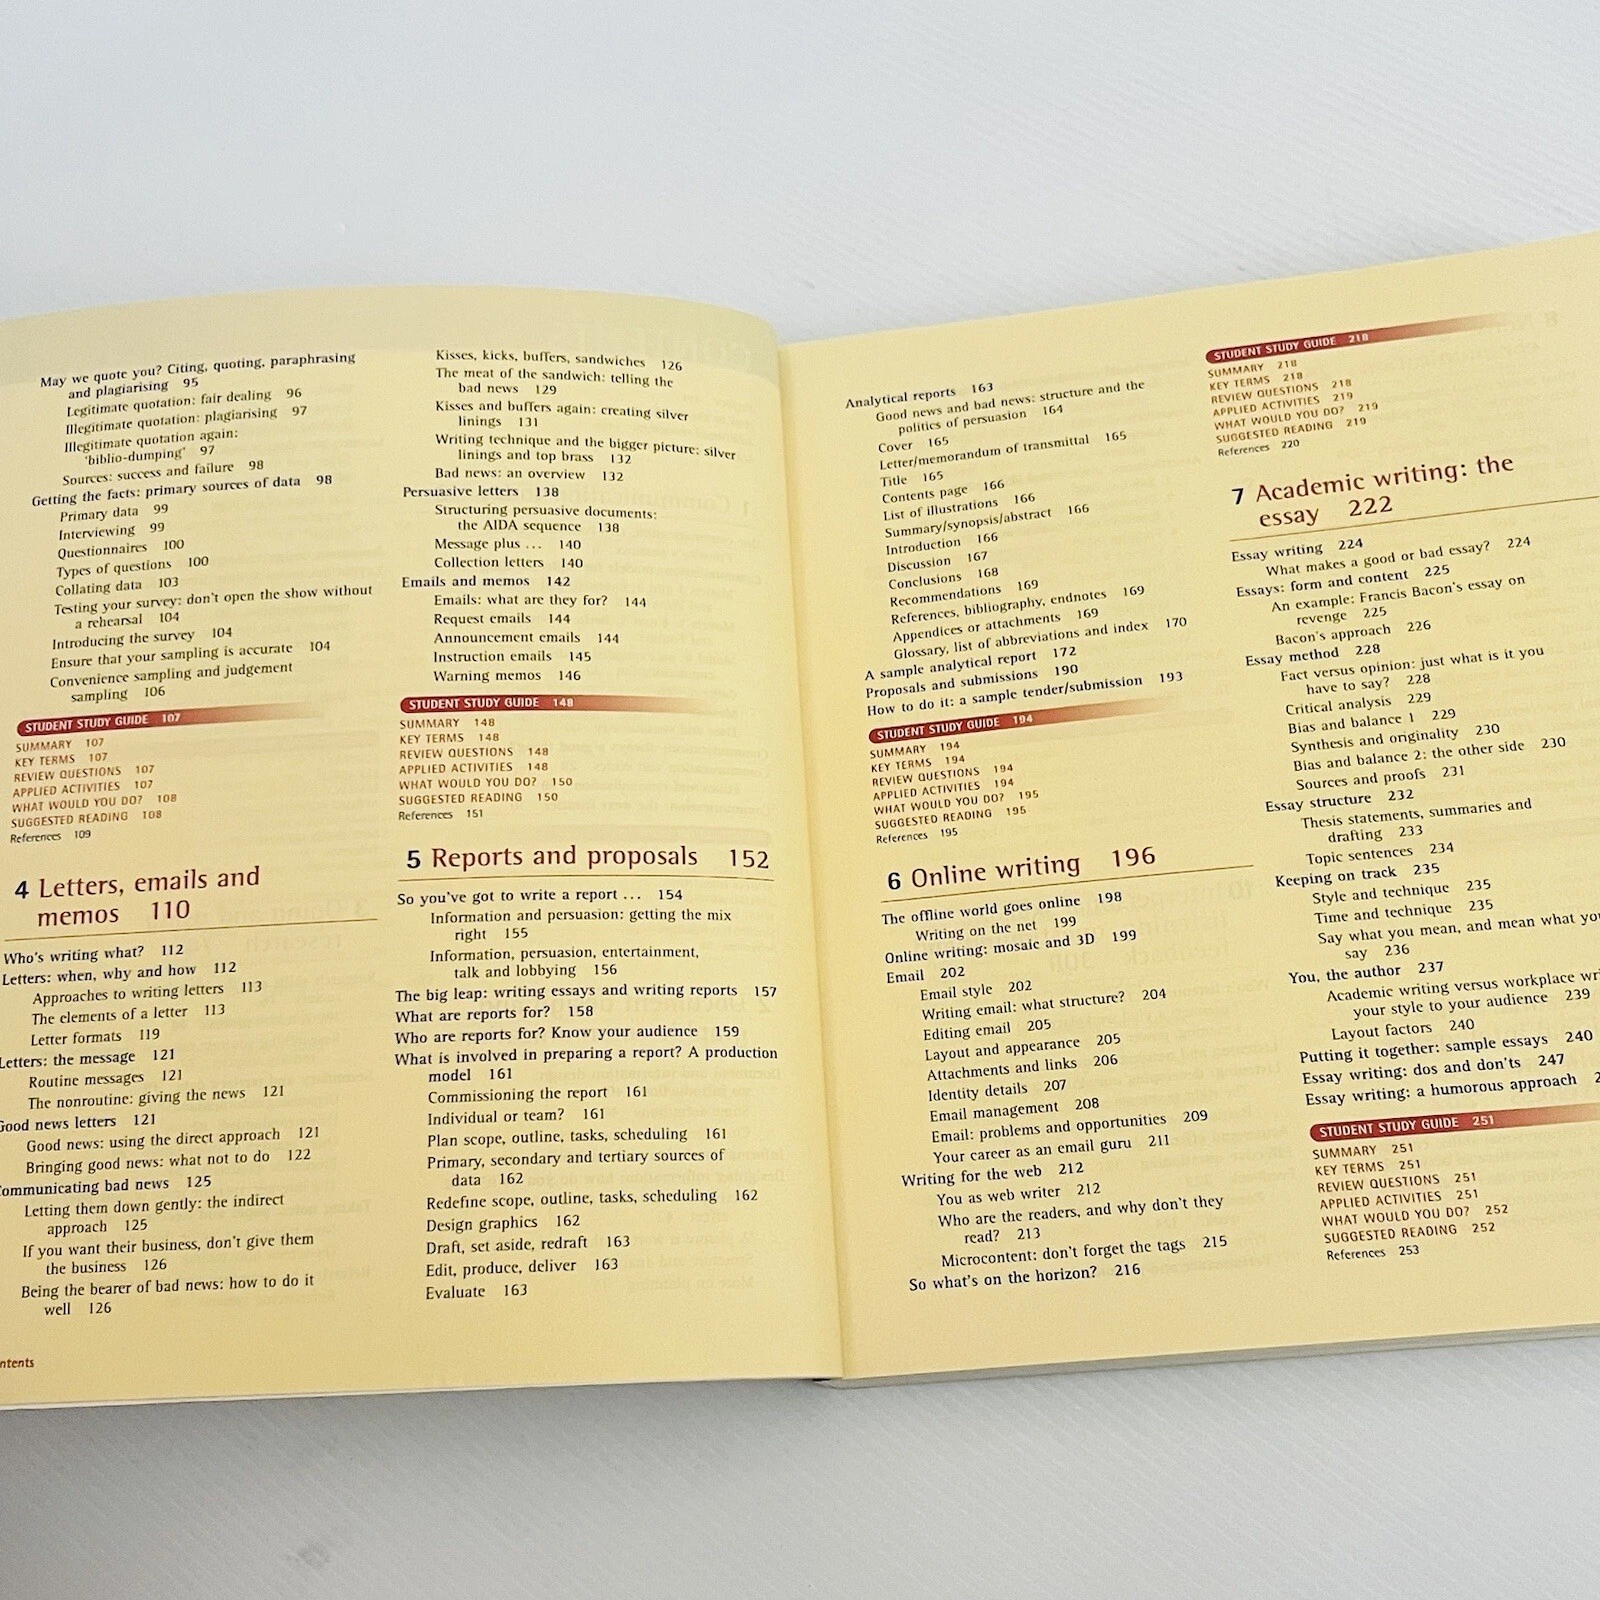 May we quote you? Citing, quoting, paraphrasing
and plagiarising 95
Legitimate quotation: fair dealing 96
Illegitimate quotation: plagiarising 97
Illegitimate quotation again:
'biblio-dumping' 97
Sources: success and failure 98
Getting the facts: primary sources of data 98
Primary data 99
Interviewing 99
Questionnaires 100
Types of questions 100
Collating data 103
Testing your survey: don't open the show without
a rehearsal 104
Introducing the survey 104
Ensure that your sampling is accurate 104
Convenience sampling and judgement
sampling 106
STUDENT STUDY GUIDE 107
SUMMARY 107
KEY TERMS 107
REVIEW QUESTIONS 107
APPLIED ACTIVITIES 107
WHAT WOULD YOU DO? 108
SUGGESTED READING 108
References 109
4 Letters, emails and
memos 110
Who's writing what? 112
Letters: when, why and how 112
Approaches to writing letters 113
The elements of a letter 113
Letter formats 119
Letters: the message 121
Routine messages 121
The nonroutine: giving the news 121
Good news letters 121
Good news: using the direct approach 121
Bringing good news: what not to do 122
ommunicating bad news 125
Letting them down gently: the indirect
approach 125
If you want their business, don't give them
the business 126
Being the bearer of bad news: how to do it
well 126
ntents
Kisses, kicks, buffers, sandwiches 126
The meat of the sandwich: telling the
bad news 129
Kisses and buffers again: creating silver
linings 131
Writing technique and the bigger picture: silver
linings and top brass 132
Bad news: an overview 132
Persuasive letters 138
Structuring persuasive documents:
the AIDA sequence 138
Message plus ... 140
Collection letters 140
Emails and memos 142
Emails: what are they for? 144
Request emails 144
Announcement emails 144
Instruction emails 145
Warning memos 146
STUDENT STUDY GUIDE 148
SUMMARY 148
KEY TERMS 148
REVIEW QUESTIONS 148
APPLIED ACTIVITIES 148
WHAT WOULD YOU DO? 150
SUGGESTED READING 150
References 151
5 Reports and proposals 152
So you've got to write a report ... 154
Information and persuasion: getting the mix
right 155
Information, persuasion, entertainment,
talk and lobbying 156
The big leap: writing essays and writing reports 157
What are reports for? 158
Who are reports for? Know your audience 159
What is involved in preparing a report? A production
model 161
Commissioning the report 161
Individual or team? 161
Plan scope, outline, tasks, scheduling 161
Primary, secondary and tertiary sources of
data 162
Redefine scope, outline, tasks, scheduling 162
Design graphics 162
Draft, set aside, redraft 163
Edit, produce, deliver 163
Evaluate 163
Analytical reports 163
Good news and bad news: structure and the
politics of persuasion 164
Cover 165
Letter/memorandum of transmittal 165
Title 165
Contents page 166
List of illustrations 166
Summary/synopsis/abstract 166
Introduction 166
Discussion 167
Conclusions 168
Recommendations 169
References, bibliography, endnotes 169
Appendices or attachments 169
Glossary, list of abbreviations and index 170
A sample analytical report 172
Proposals and submissions 190
How to do it: a sample tender/submission 193
STUDENT STUDY GUIDE 194
SUMMARY 194
KEY TERMS 194
REVIEW QUESTIONS 194
APPLIED ACTIVITIES 194
WHAT WOULD YOU DO? 195
SUGGESTED READING 195
References 195
6 Online writing 196
The offline world goes online 198
Writing on the net 199
Online writing: mosaic and 3D 199
Email 202
Email style 202
Writing email: what structure? 204
Editing email 205
Layout and appearance 205
Attachments and links 206
Identity details 207
Email management 208
Email: problems and opportunities 209
Your career as an email guru 211
Writing for the web 212
You as web writer 212
Who are the readers, and why don't they
read? 213
Microcontent: don't forget the tags 215
So what's on the horizon? 216
STUDENT STUDY GUIDE 218
SUMMARY 218
KEY TERMS 218
REVIEW QUESTIONS 218
APPLIED ACTIVITIES 219
WHAT WOULD YOU DO? 219
SUGGESTED READING 219
References 220
7 Academic writing: the
essay 222
Essay writing 224
What makes a good or bad essay? 224
Essays: form and content 225
An example: Francis Bacon's essay on
revenge 225
Bacon's approach 226
Essay method 228
Fact versus opinion: just what is it you
have to say? 228
Critical analysis 229
Bias and balance 1 229
Synthesis and originality 230
Bias and balance 2: the other side 230
Sources and proofs 231
Essay structure 232
Thesis statements, summaries and
drafting 233
Topic sentences 234
Keeping on track 235
Style and technique 235
Time and technique 235
Say what you mean, and mean what you
say 236
You, the author 237
Academic writing versus workplace wri
your style to your audience 239
Layout factors 240
Putting it together: sample essays 240
Essay writing: dos and don'ts 247
Essay writing: a humorous approach
STUDENT STUDY GUIDE 251
SUMMARY 251
KEY TERMS 251
REVIEW QUESTIONS 251
APPLIED ACTIVITIES 251
WHAT WOULD YOU DO? 252
SUGGESTED READING 252
References 253